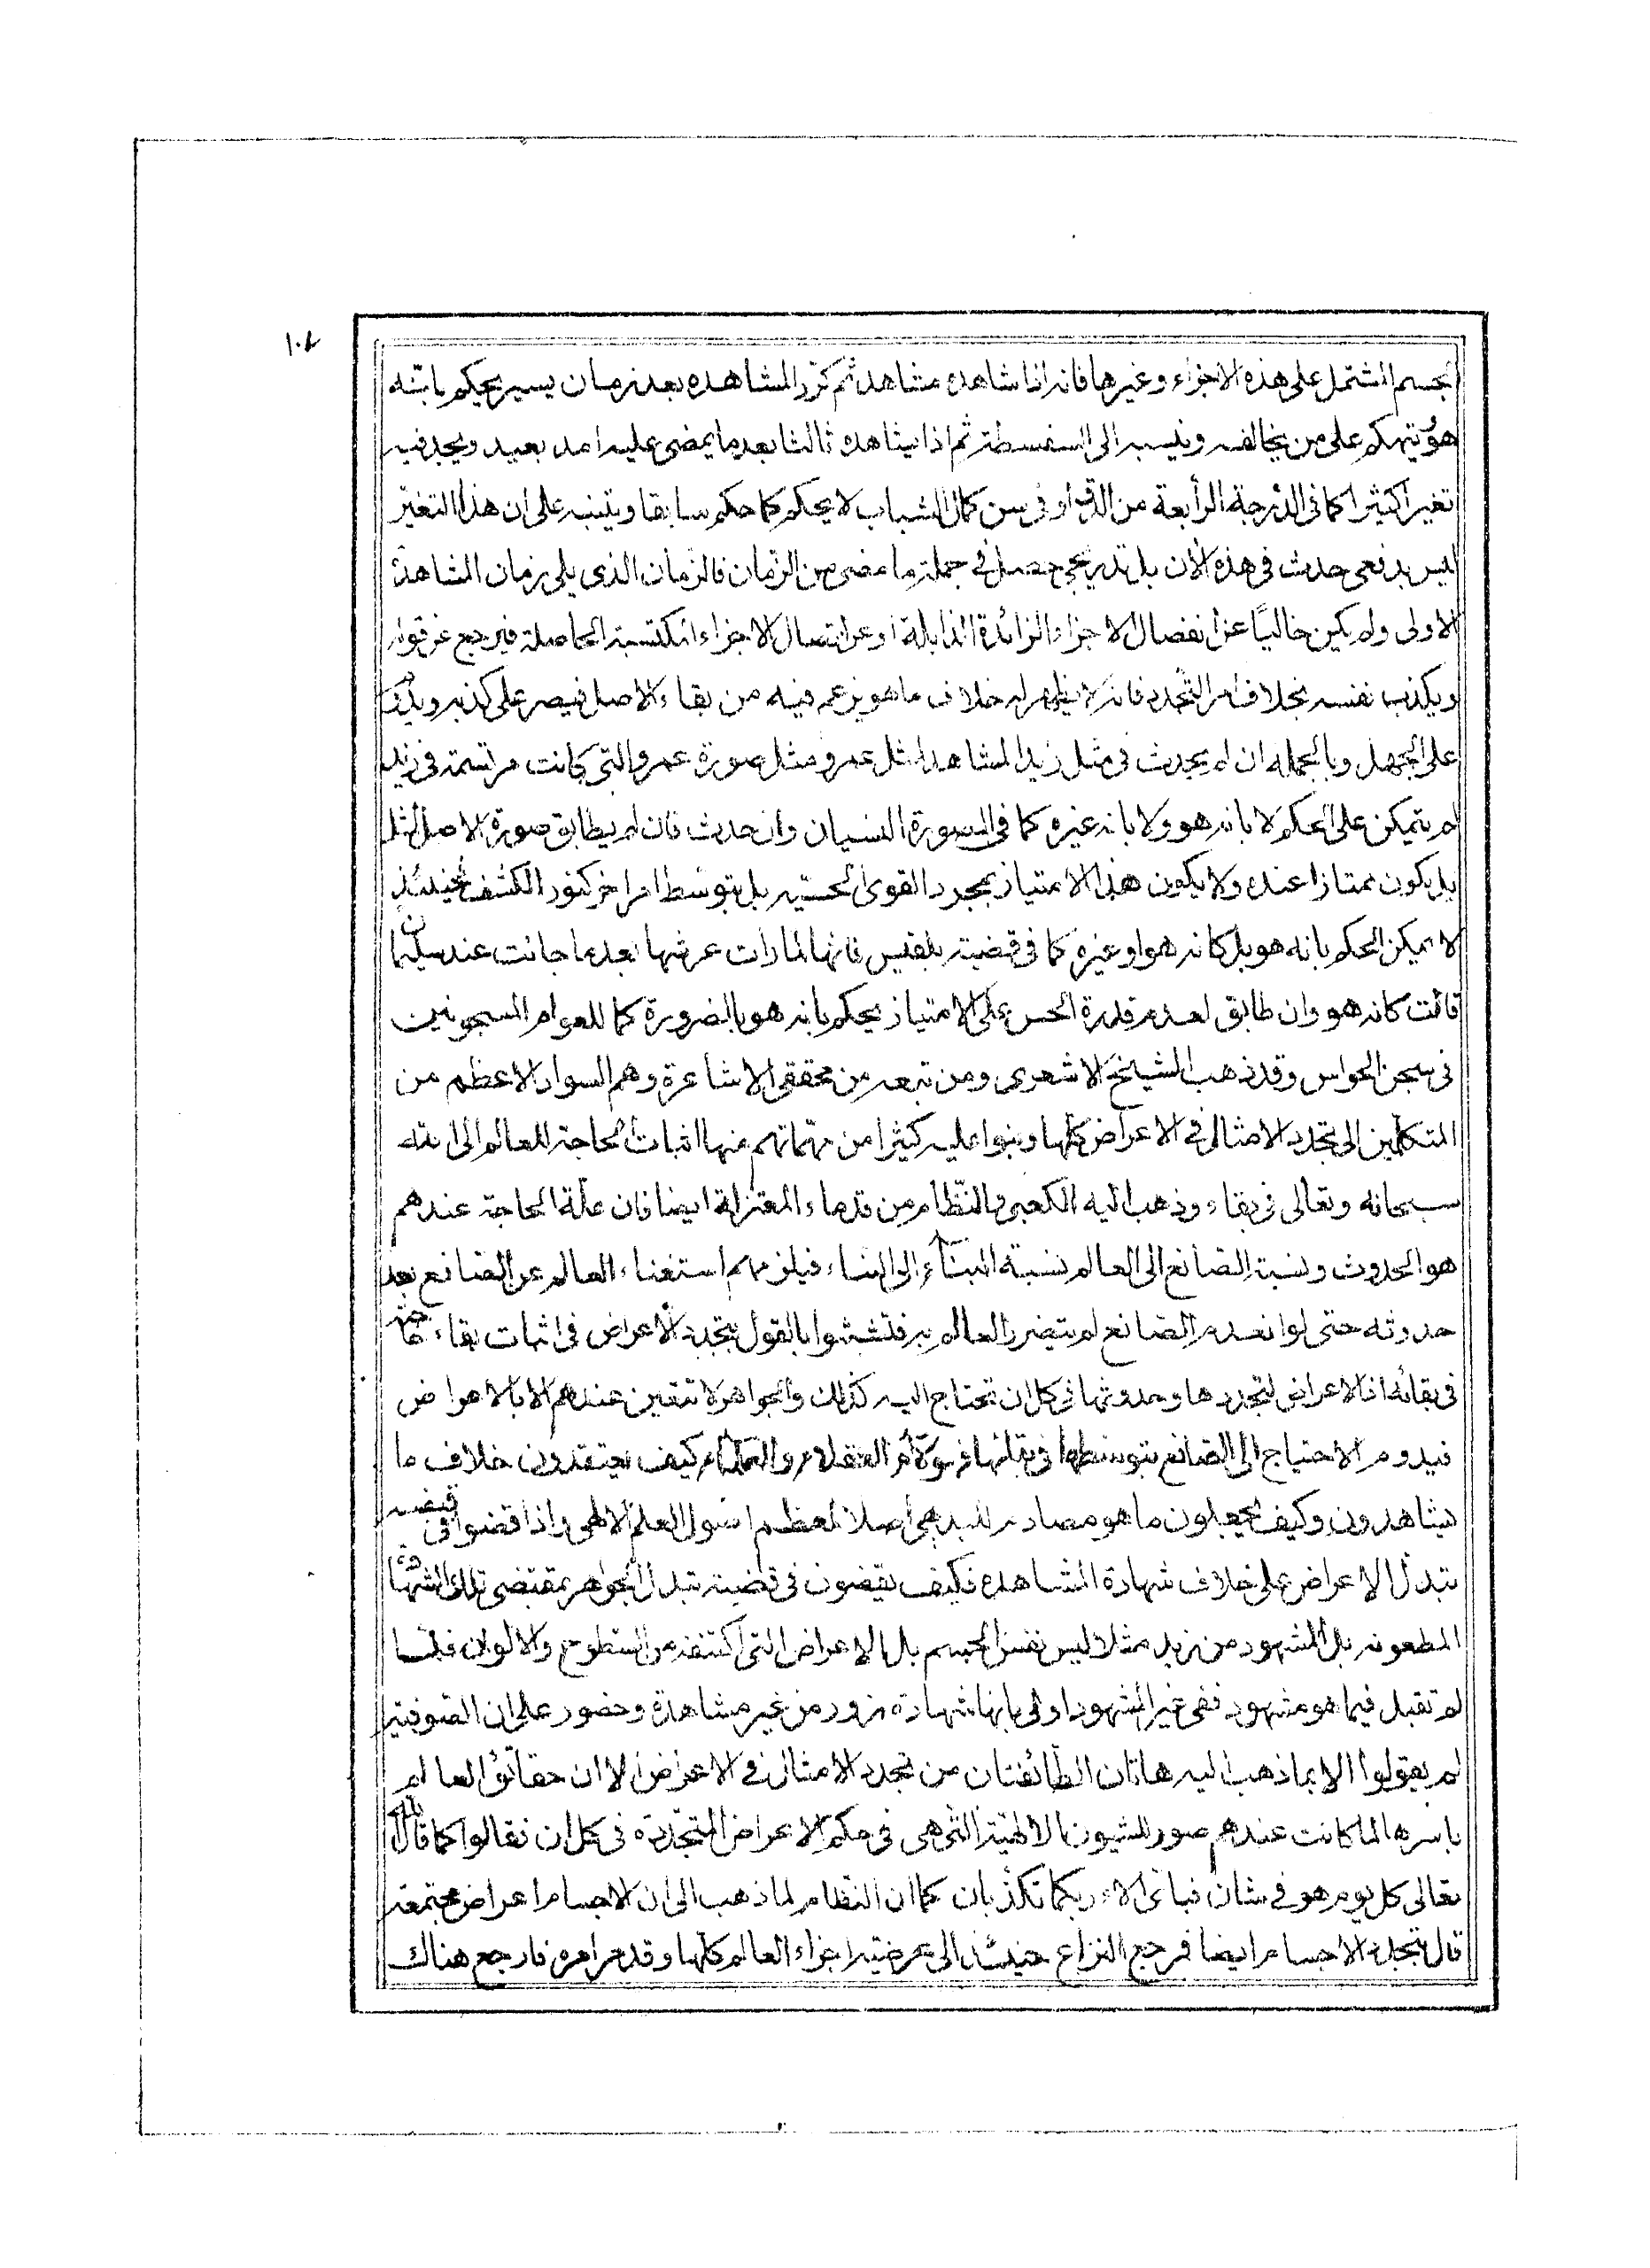 ١٠٤
الجسم المشتمل على هذه الاجزاء وغيرها فانه اذا شاهده مشاهد ثم كرّر المشاهده بعد زمان يسير يحكم بانّه
هو ويتهكم على من يخالفه وينسبه الى السفسطة ثم اذا يشاهده ثالثا بعد ما يمضى عليه امد بعيد ويجد فيه
تغيرا كثيرا كما فى الدّرجة الرابعة من الدق او فى سن كمال الشباب لا يحكم كما حكم سابقا ويتنبه على ان هذا التغيّر
ليس بدفعى حدث فى هذه الان بل تدريجى حصل فى جملة ما مضى من الزمان فالزمان الذى يلى زمان المشاهدة
الاولى ولم يكن خاليًا عن انفصال الاجزاء الزائدة الذابلة او عن اتصال الاجزاء المكتسبة الحاصلة فيرجع عن قوله
ويكذب نفسه بخلاف امر التجدد فانه لا يظهر له خلاف ما هو يزعم فيه من بقاء الاصل فيصر على كذبه
على الجهل وبالجمله ان لم يحدث فى مثل زيد المشاهد مثل عمرو مثل صورة عمرو التى كانت مرتسمة فى زيد
لم يتمكن على الحكم لا بانه هو ولا بانه غيره كما فى الصورة النسيان وان حدث فان لم يطابق صورة الاصل المثل
بل يكون ممتازا عنده ولا يكون هذا الامتياز بمجرد القوى الحسّيه بل بتوسّط امر اخر كنور الكشف فحينئذ
لا تمكن الحكم بانه هو بل كانه هو او غيره كما فى قضية بلقيس فانها لما رات عرشها بعد ما جائت عند سليمان
قالت كانه هو وان طابق لعدم قدرة الحس على الامتياز يحكم بانه هو بالضرورة كما للعوام المسجونين
فى سجن الحواس وقد ذهب الشيخ الاشعرى ومن تبعه من محققى الاشاعرة وهم السواد الاعظم من
المتكلمين الى تجدد الامثال فى الاعراض كلها وبنوا عليه كثيرا من مهمّاتهم منها اثبات الحاجة للعالم الى الله
سبحانه وتعالى فى بقاء وذهب اليه الكعبى والنّظام من قدماء المعتزلة ايضا فان علّة الحاجة عندهم
هو الحدوث ونسبة الصّانع الى العالم نسبة البنّاء الى البناء فيلزمهم استغناء العالم عن الصّانع بعد
حدوثه حتى لو انعدم الصانع لم يتضرر العالم به فتشبثوا بالقول بتجدد الاعراض فى اثبات بقاء حاجته
فى بقائه اذ الاعراض لتجددها وحدوثها فى كل ان تحتاج اليه كذلك والجواهر لا تتقين عندهم الا بالاعراض
فيدوم الاحتياج الى الصّانع بتوسطها فى بقائها فهؤلاء العقلاء والعلماء كيف يعتقدون خلاف ما
يشاهدون وكيف يجعلون ما هو مصادم للبديهى اصلا لعظم اصول العلم الالهى واذا قضوا فى قضية
تبدل الاعراض على خلاف شهادة المشاهدة فكيف يقضون فى قضية تبدل الجواهر بمقتضى تلك الشهادة
المطعونه بل المشهود من زيد مثلا ليس نفس الجسم بل الاعراض التى اكتنفه من السّطوح والالوان فلمّا
لم تقبل فيما هو مشهود ففى غير المشهود اولى بانها شهادة زور من غير مشاهدة وحضور على ان الصّوفية
لم يقولوا الا بما ذهب اليه هاتان الطّائفتان من تجدد الامثال فى الاعراض الا ان حقائق العالم
باسرها لما كانت عندهم صور للشيون الالهيّة التى هى فى حكم الاعراض المتجدّدة فى كل ان نقالوا كما قال الله
تعالى كل يوم هو فى شان فباىّ الاء ربكما تكذّبان كما ان النّظام لما ذهب الى ان الاجسام اعراض مجتمعة
قال بتجدد الاجسام ايضا فرجع النزاع حينئذ الى عرضية اجزاء العالم كلها وقد مر امره فارجع هناك